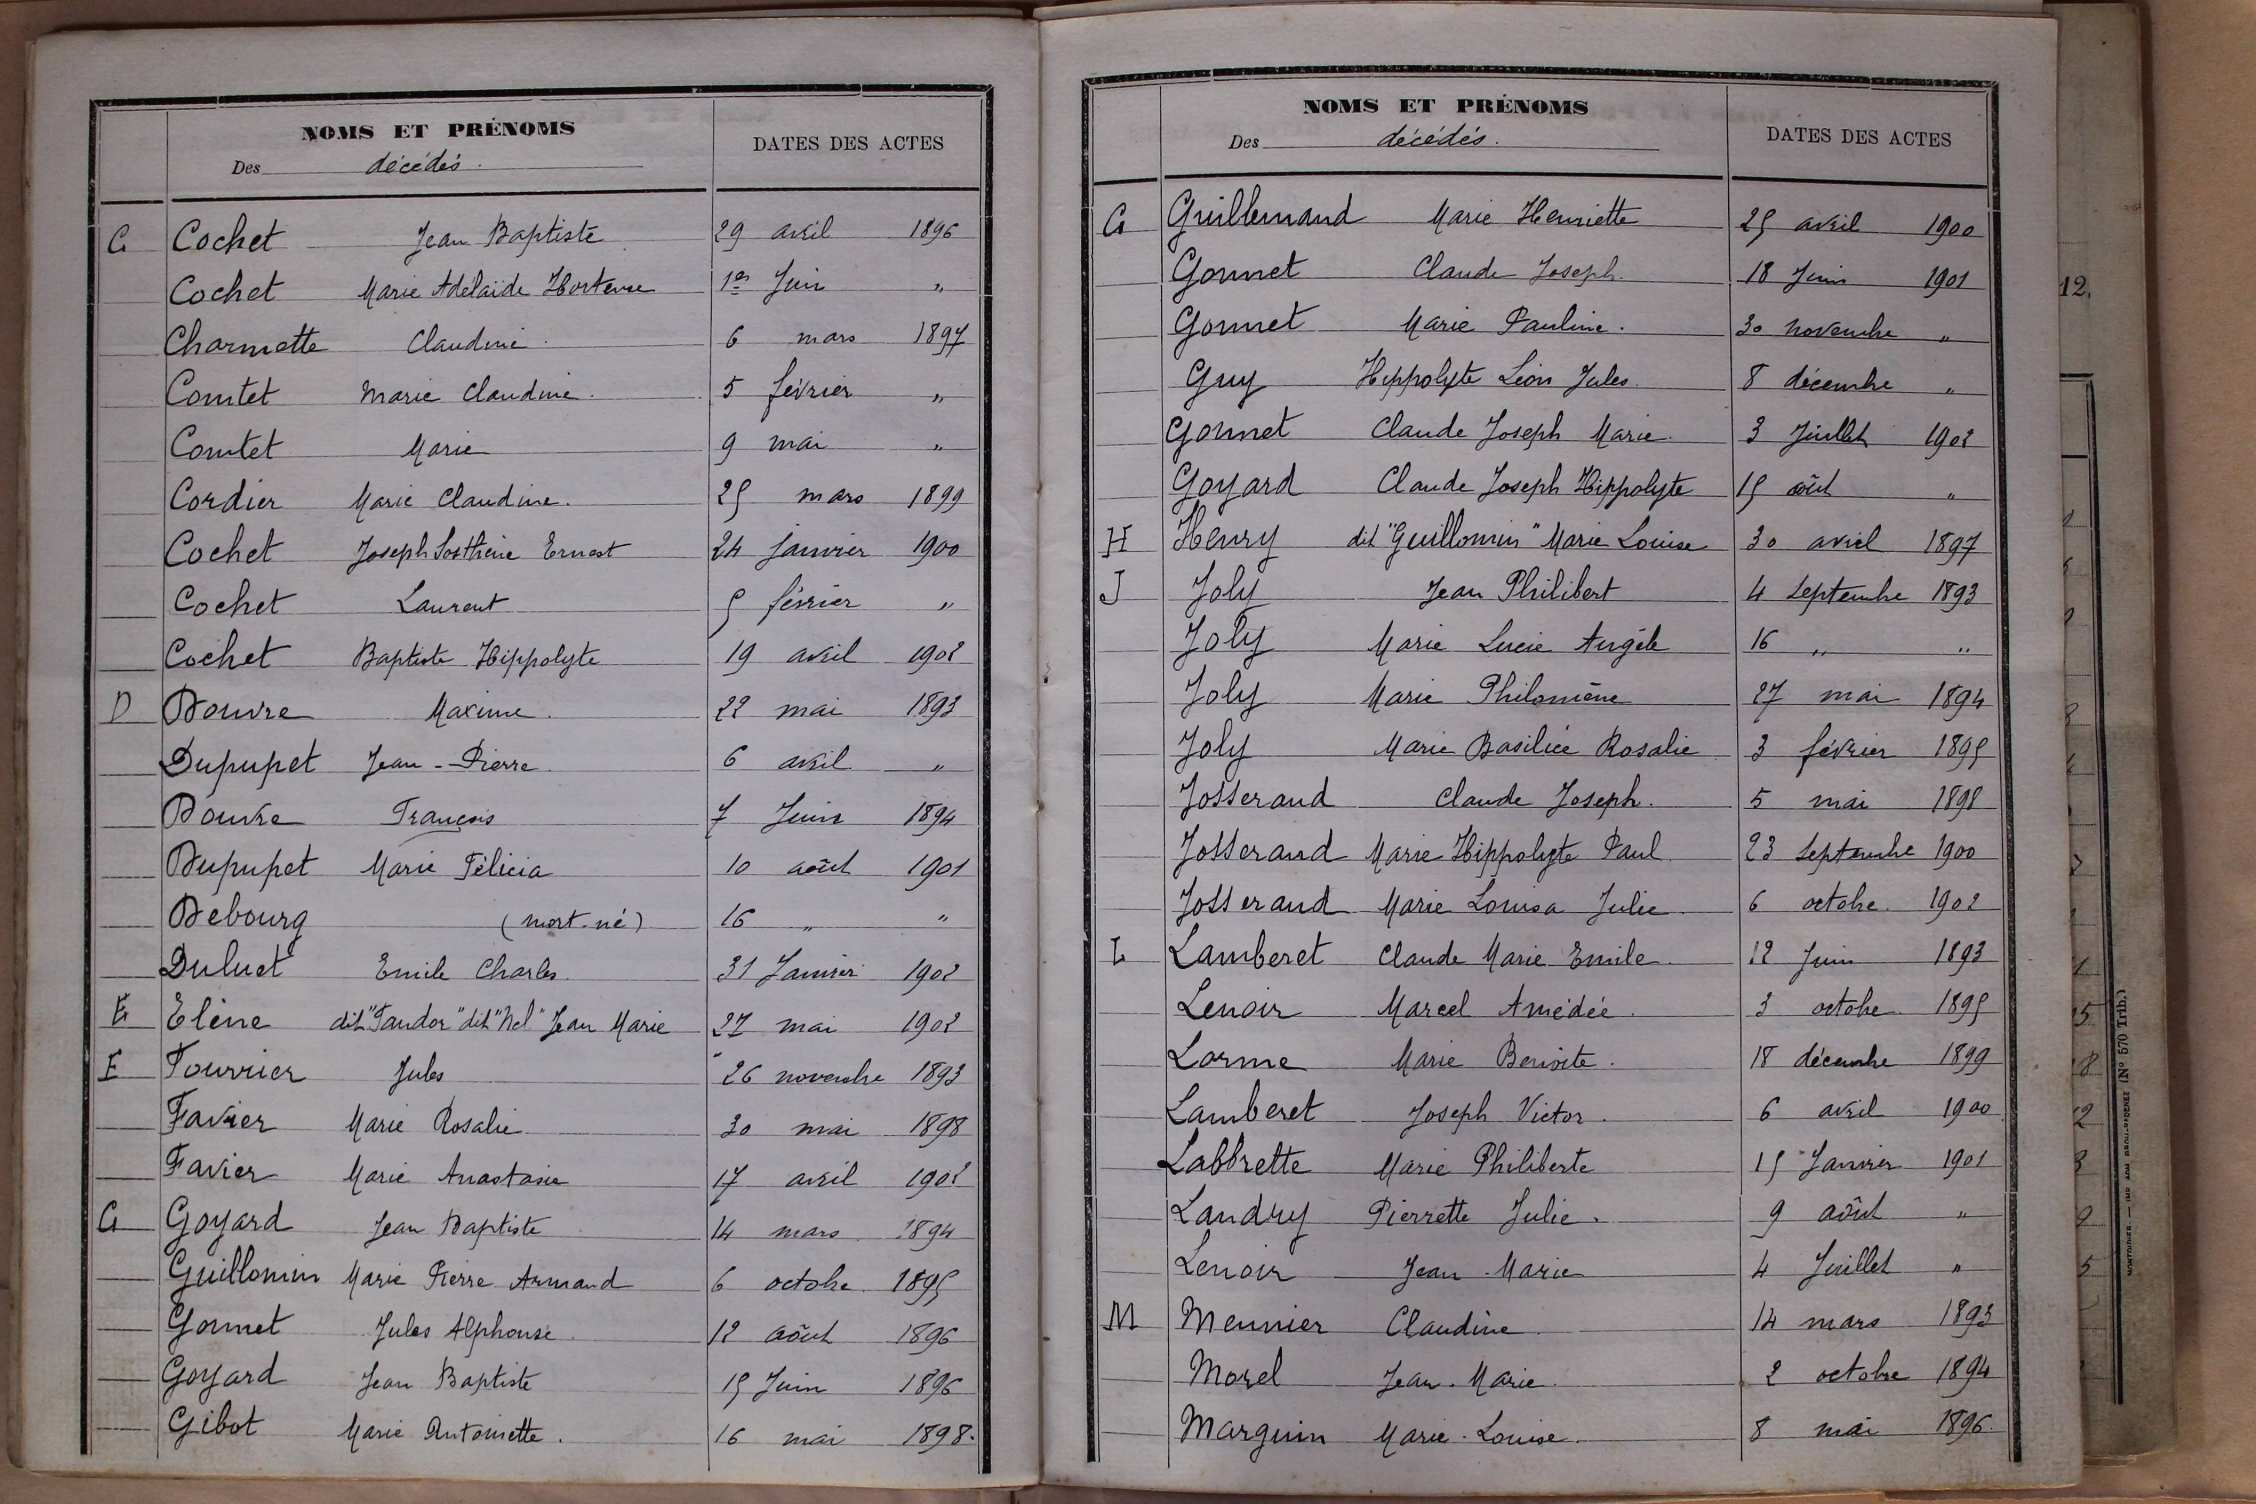 NOMS ET PRÉNOMS
Des décédés.
DATES DES ACTES
C Cochet Jean Baptiste 29 avril 1896
Cochet Marie Adélaïde Hortense 1er Juin "
Charmette Claudine 6 mars 1897
Comtet Marie Claudine. 5 février "
Comtet Marie 9 mai "
Cordier Marie Claudine. 25 mars 1899
Cochet Joseph Sosthène Ernest 24 janvier 1900
Cochet Laurent 5 février "
Cochet Baptiste Hippolyte 19 avril 1902
D Douvre Maxime. 22 mai 1893
Dupupet Jean-Pierre 6 avril "
Douvre François 7 Juin 1894
Dupupet Marie Félicia 10 août 1901
Debourg (mort-né) 16 " "
Duluet Emile Charles 31 Janvier 1902
E Elène dit "Tandor" dit "Nel" Jean Marie 27 mai 1902
F Fourrier Jules 26 novembre 1893
Favier Marie Rosalie 30 mai 1898
Favier Marie Anastasie 17 avril 1902
G Goyard Jean Baptiste 14 mars 1894
Guillomin Marie Pierre Armand 6 octobre 1895
Gonnet Jules Alphonse 12 août 1896
Goyard Jean Baptiste 15 Juin 1896
Gibot Marie Antoinette. 16 mai 1898.
NOMS ET PRÉNOMS
Des décédés.
DATES DES ACTES
G Guillemaud Marie Henriette 25 avril 1900
Gonnet Claude Joseph 18 Juin 1901
Gonnet Marie Pauline. 30 novembre "
Guy Hippolyte Léon Jules 8 décembre "
Gonnet Claude Joseph Marie 3 Juillet 1902
Goyard Claude Joseph Hippolyte 15 août "
H Henry dit "Guillomin" Marie Louise 30 avril 1897
J Joly Jean Philibert 4 Septembre 1893
Joly Marie Lucie Angèle 16 " "
Joly Marie Philomène 27 mai 1894
Joly Marie Basilice Rosalie 3 février 1895
Josserand Claude Joseph. 5 mai 1898
Josserand Marie Hippolyte Paul 23 Septembre 1900
Josserand Marie Louisa Julie 6 octobre 1902
L Lamberet Claude Marie Emile 12 Juin 1893
Lenoir Marcel Amédée. 3 octobre 1895
Lorme Marie Benoite. 18 décembre 1899
Lamberet Joseph Victor. 6 avril 1900
Labbrette Marie Philiberte 15 Janvier 1901
Landry Pierrette Julie. 9 août "
Lenoir Jean-Marie 4 Juillet "
M Meunier Claudine 14 mars 1893
Morel Jean-Marie 2 octobre 1894
Marguin Marie-Louise. 8 mai 1896.
12.
(Nº 570 Trib.)